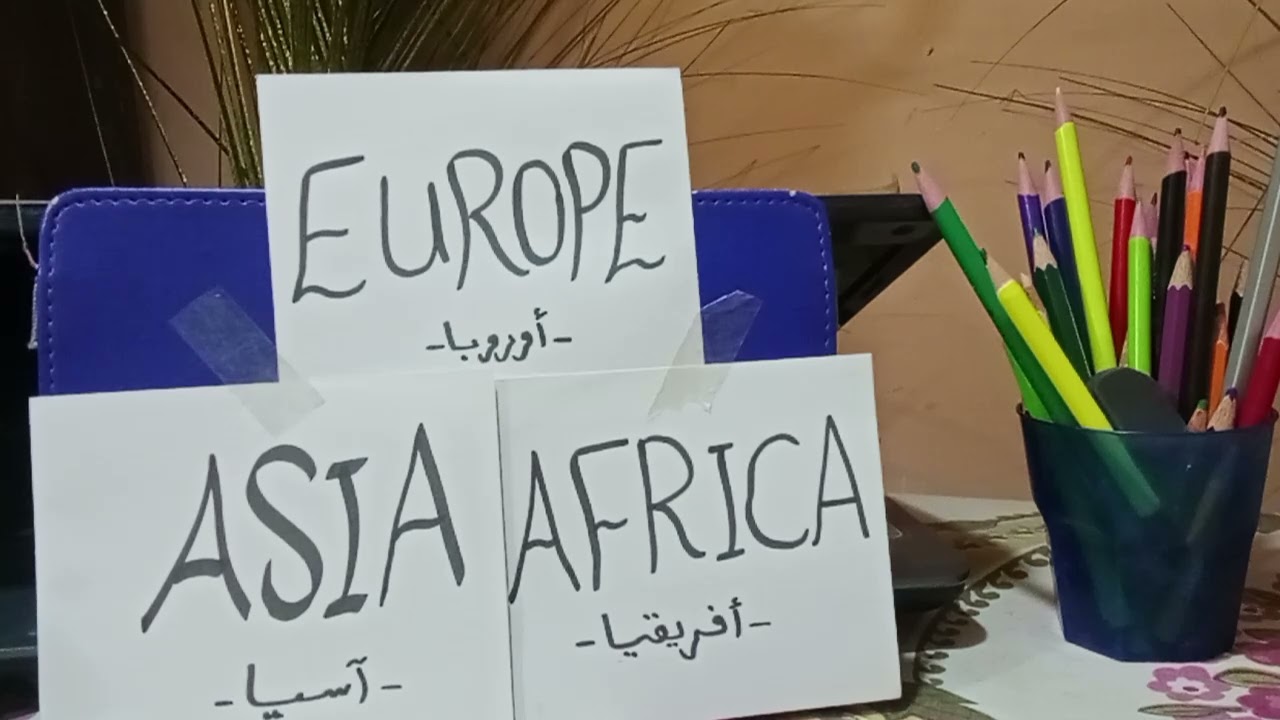 EUROPE
-أوروبا-
ASIA
-آسيا-
AFRICA
-أفريقيا-